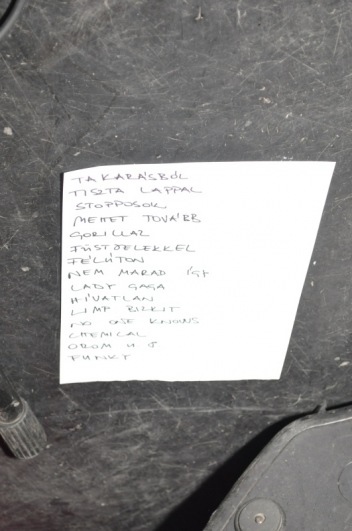 TAKARÁSBÓL
TISZTA LAPPAL
STOPPOSOK
MEHET TOVÁBB
GORILLAZ
FÜSTJELEKKEL
FÉLÚTON
NEM MARAD ÍGY
LADY GAGA
HÍVATLAN
LIMP BIZKIT
NO ONE KNOWS
CHEMICAL
FUNKY